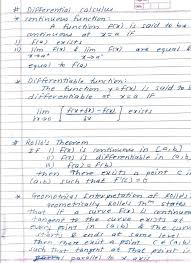 # Differential calculus
* continuous function:-
A function f(x) is said to be
continuous at x=a if
i) f(a) exists
ii) lim f(x) & lim f(x) are equal &
x→a⁺ x→a⁻
equal to f(a)
* Differentiable function:-
The function y=f(x) is said to be
differentiable at x=a if
lim [f(x+δx)-f(x)] exists
* Rolle's Theorem
If i) f(x) is continuous in [a,b]
ii) f(x) is differentiable in (a,b)
iii) f(a) = f(b)
then There exists a point c in
(a,b) such that f'(c)=0
* Geometrical Interpretation of Rolle's
Geometrically Rolle's Thm states
that if a curve f(x) is continuous
tangent to the curve exists at
every point in (a,b) & the curve
starts & ends at same level
then there exist a point c in
(a,b) such that tangent at that point is
parallel to x axis